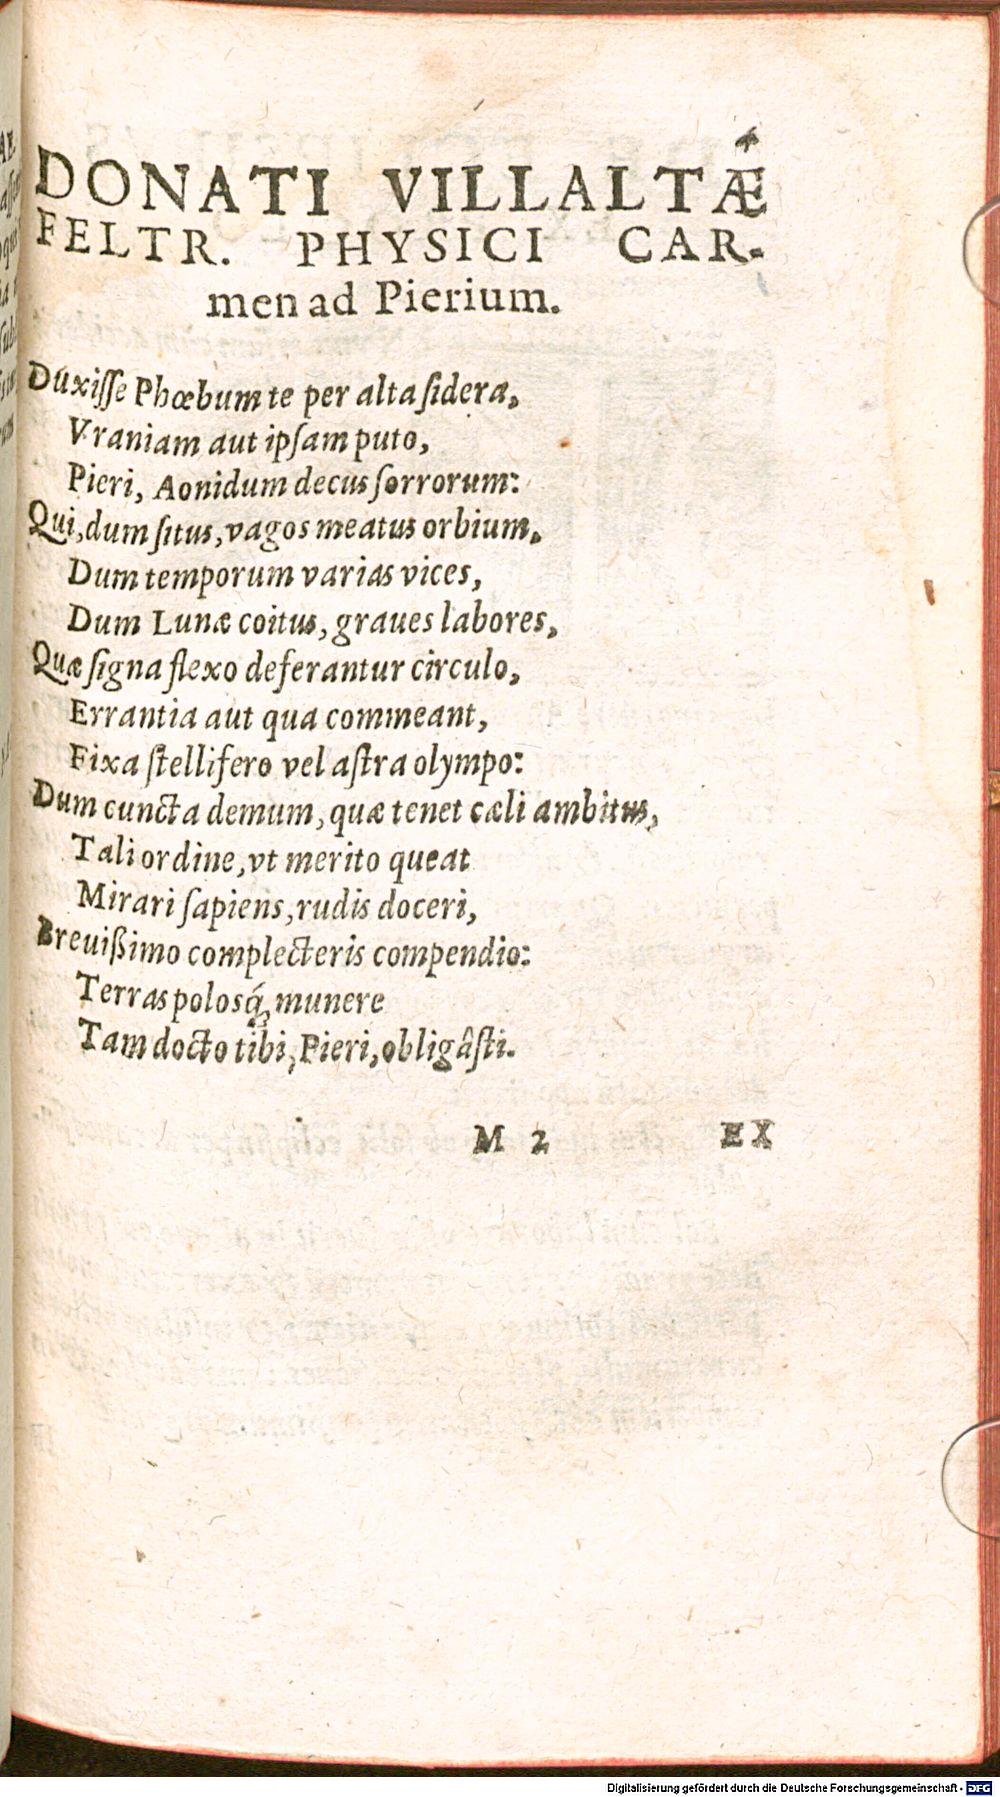 DONATI VILLALTÆ
FELTR. PHYSICI CAR-
men ad Pierium.
Duxiſſe Phœbum te per alta ſidera,
Vraniam aut ipſam puto,
Pieri, Aonidum decus ſorrorum:
Qui, dum ſitus, vagos meatus orbium,
Dum temporum varias vices,
Dum Lunæ coitus, graues labores,
Quæ ſigna flexo deferantur circulo,
Errantia aut qua commeant,
Fixa ſtellifero vel aſtra olympo:
Dum cuncta demum, quæ tenet cæli ambitus,
Tali ordine, vt merito queat
Mirari ſapiens, rudis doceri,
Breuißimo complecteris compendio:
Terras polosq́; munere
Tam docto tibi, Pieri, obligâſti.
M 2 EX
Digitalisierung gefördert durch die Deutsche Forschungsgemeinschaft - DFG